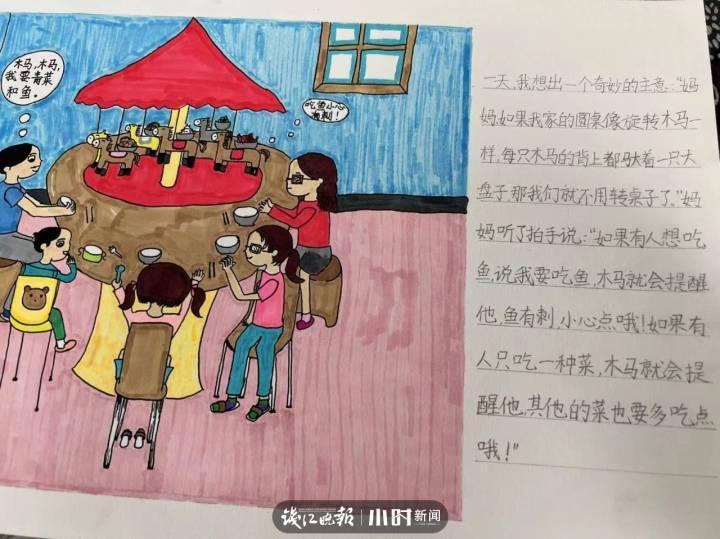 木马,木马,
我要青菜
和鱼。
吃鱼小心
有刺!
一天,我想出一个奇妙的主意:“妈
妈,如果我家的圆桌像旋转木马一
样,每只木马的背上都驮着一只大
盘子,那我们就不用转桌子了。”妈
妈听了拍手说:“如果有人想吃
鱼,说我要吃鱼,木马就会提醒
他,鱼有刺,小心点哦!如果有
人只吃一种菜,木马就会提
醒他,其他的菜也要多吃点
哦!”
钱江晚报 | 小时新闻